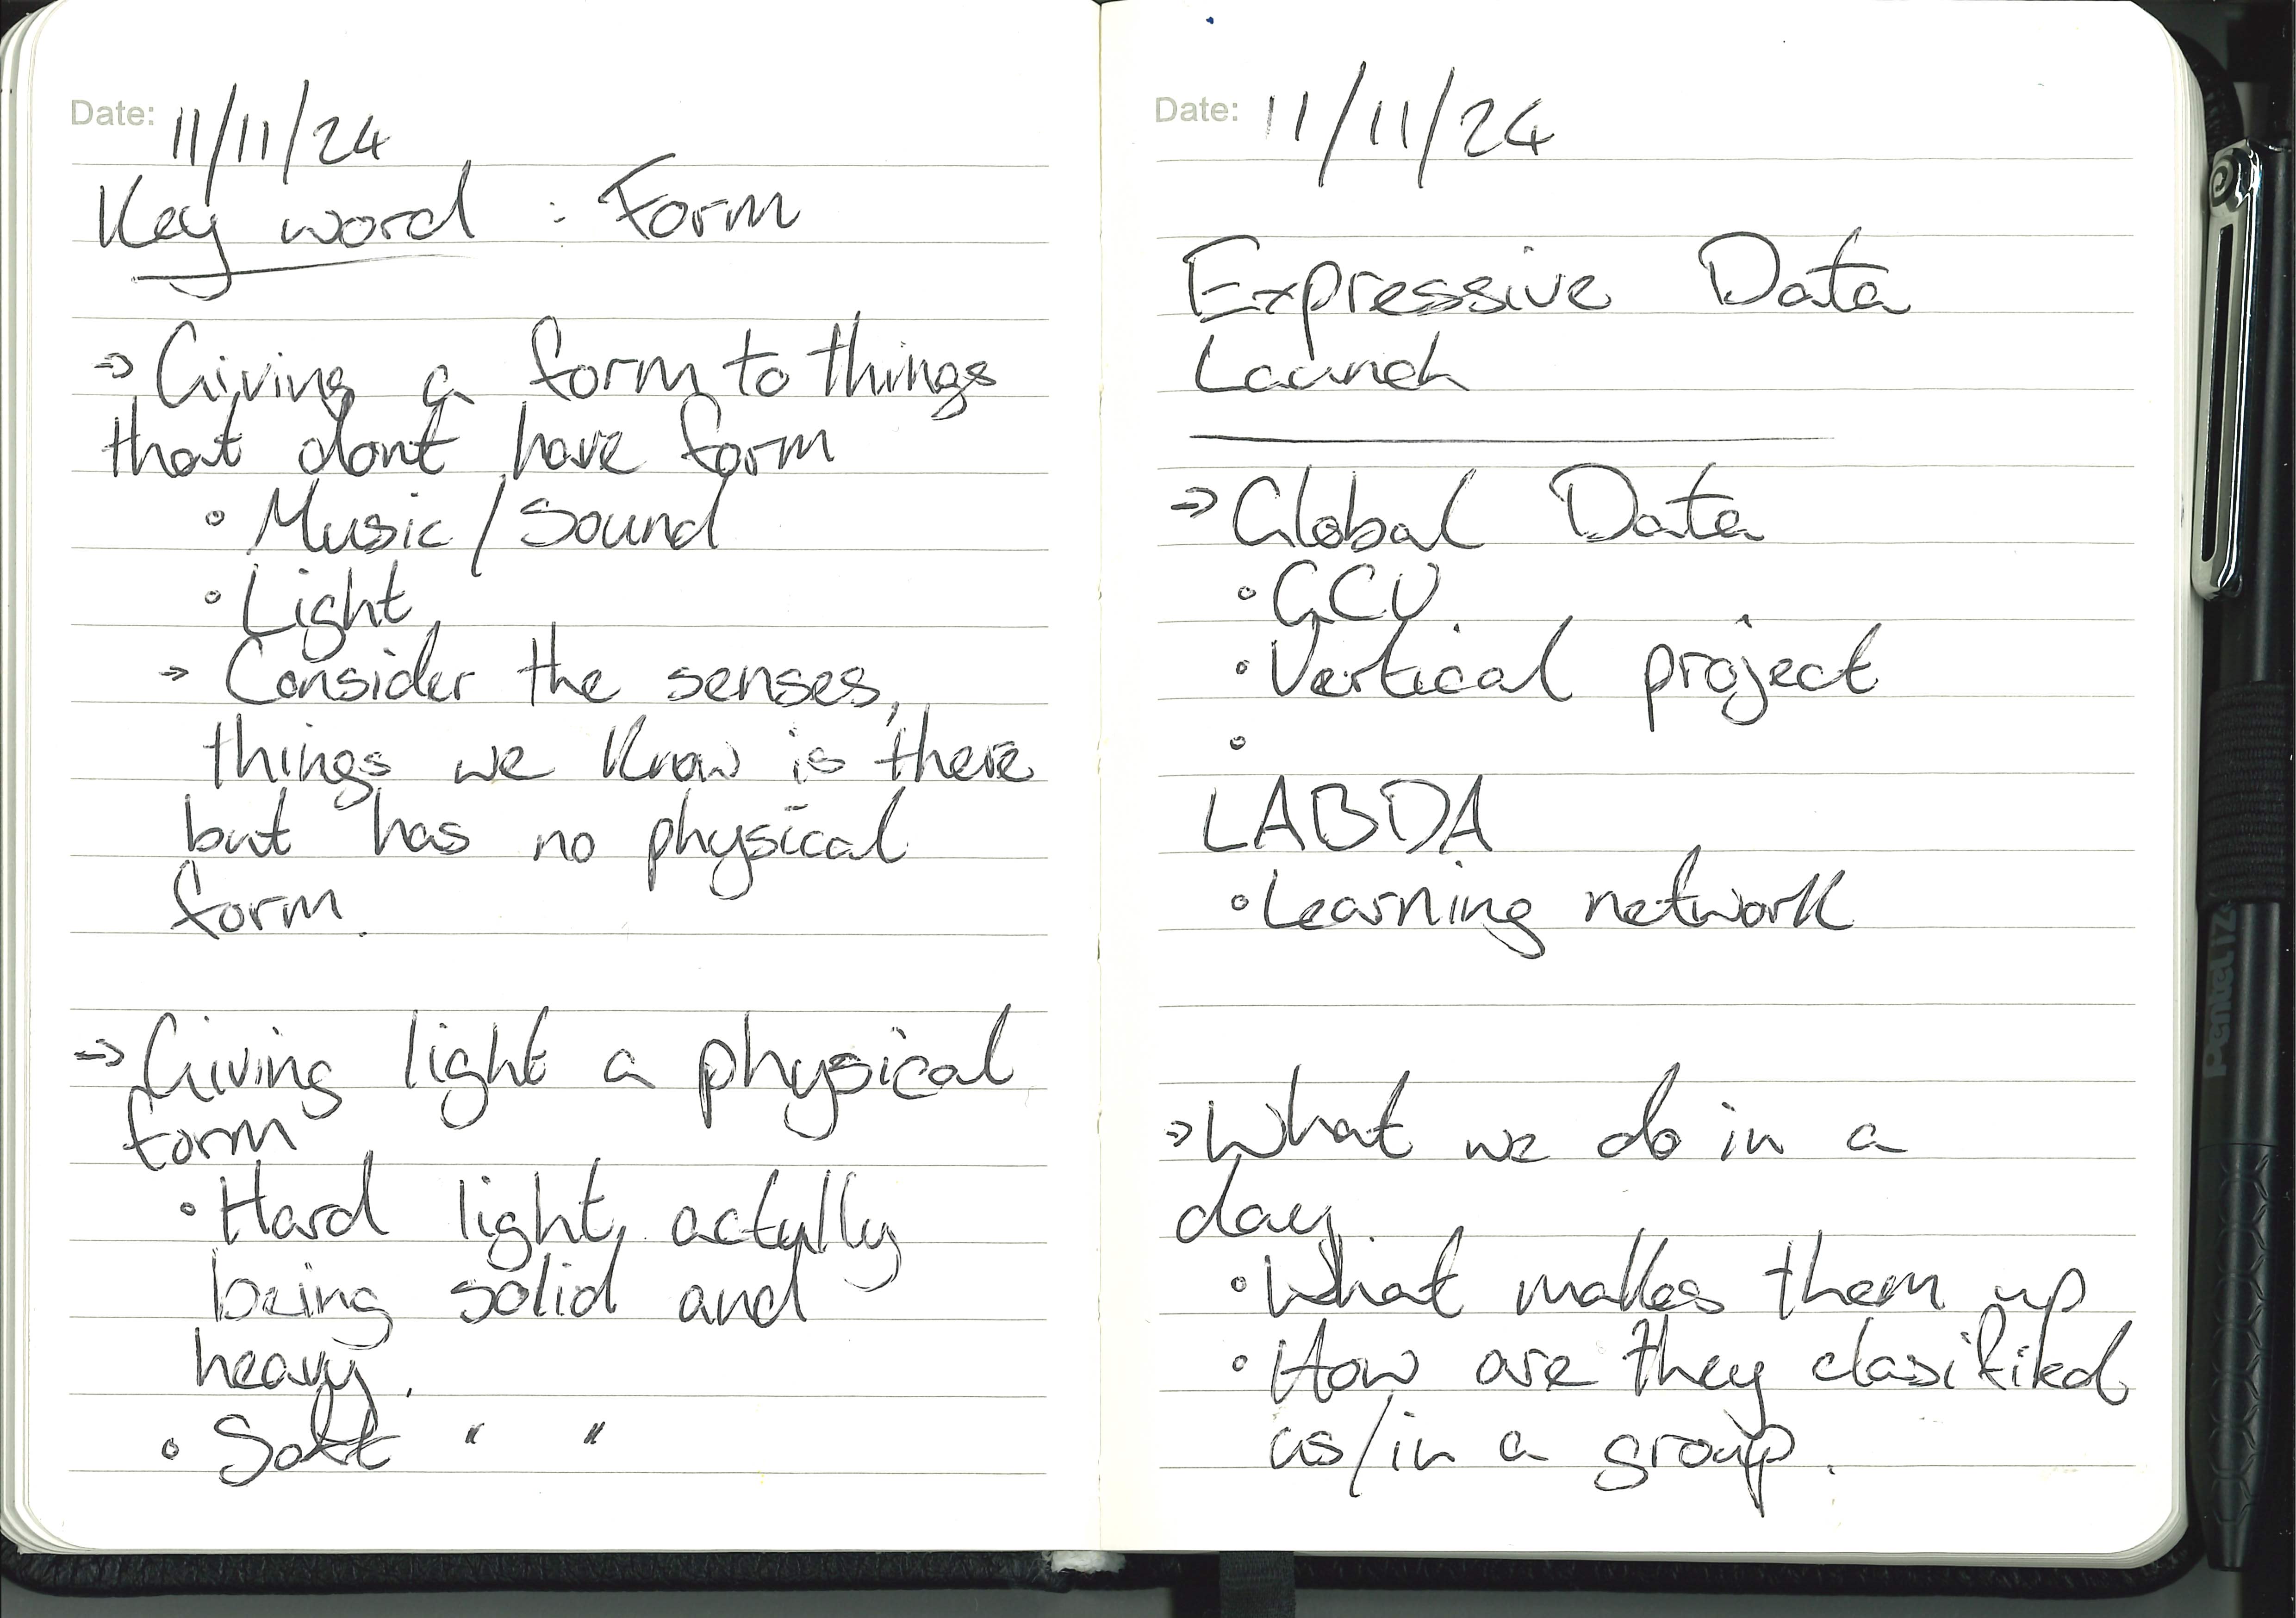 Date: 11/11/24
Key word : Form
→ Giving a form to things
that dont have form
• Music / Sound
• Light
→ Consider the senses,
things we know is there
but has no physical
form.
→ Giving light a physical
form
• Hard light, actully
being solid and
heavy.
• Soft " "
Date: 11/11/24
Expressive Data
Launch
→ Global Data
• GCU
• Vertical project
•
LABDA
• Learning network
→ What we do in a
day
• What makes them up
• How are they clasifiked
as/in a group.
Pentel